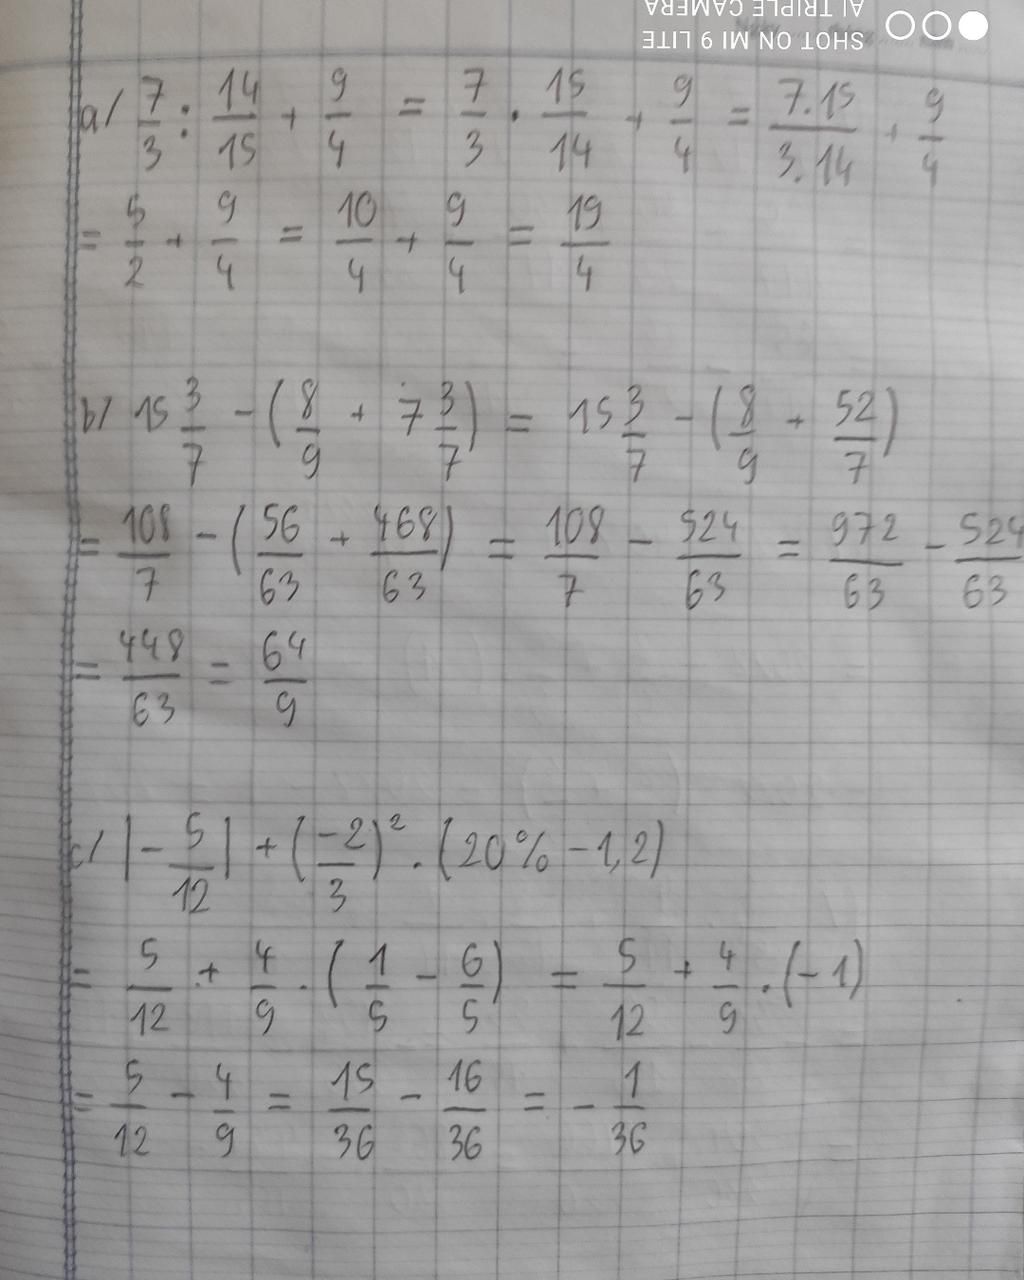 SHOT ON MI 9 LITE
AI TRIPLE CAMERA
a/ 7/3 : 14/15 + 9/4 = 7/3 . 15/14 + 9/4 = 7.15/3.14 + 9/4
= 5/2 + 9/4 = 10/4 + 9/4 = 19/4
b/ 15 3/7 - (8/9 + 7 3/7) = 15 3/7 - (8/9 + 52/7)
= 108/7 - (56/63 + 468/63) = 108/7 - 524/63 = 972/63 - 524/63
= 448/63 = 64/9
c/ |- 5/12| + (-2/3)² . (20% - 1,2)
= 5/12 + 4/9 . (1/5 - 6/5) = 5/12 + 4/9 . (-1)
= 5/12 - 4/9 = 15/36 - 16/36 = - 1/36